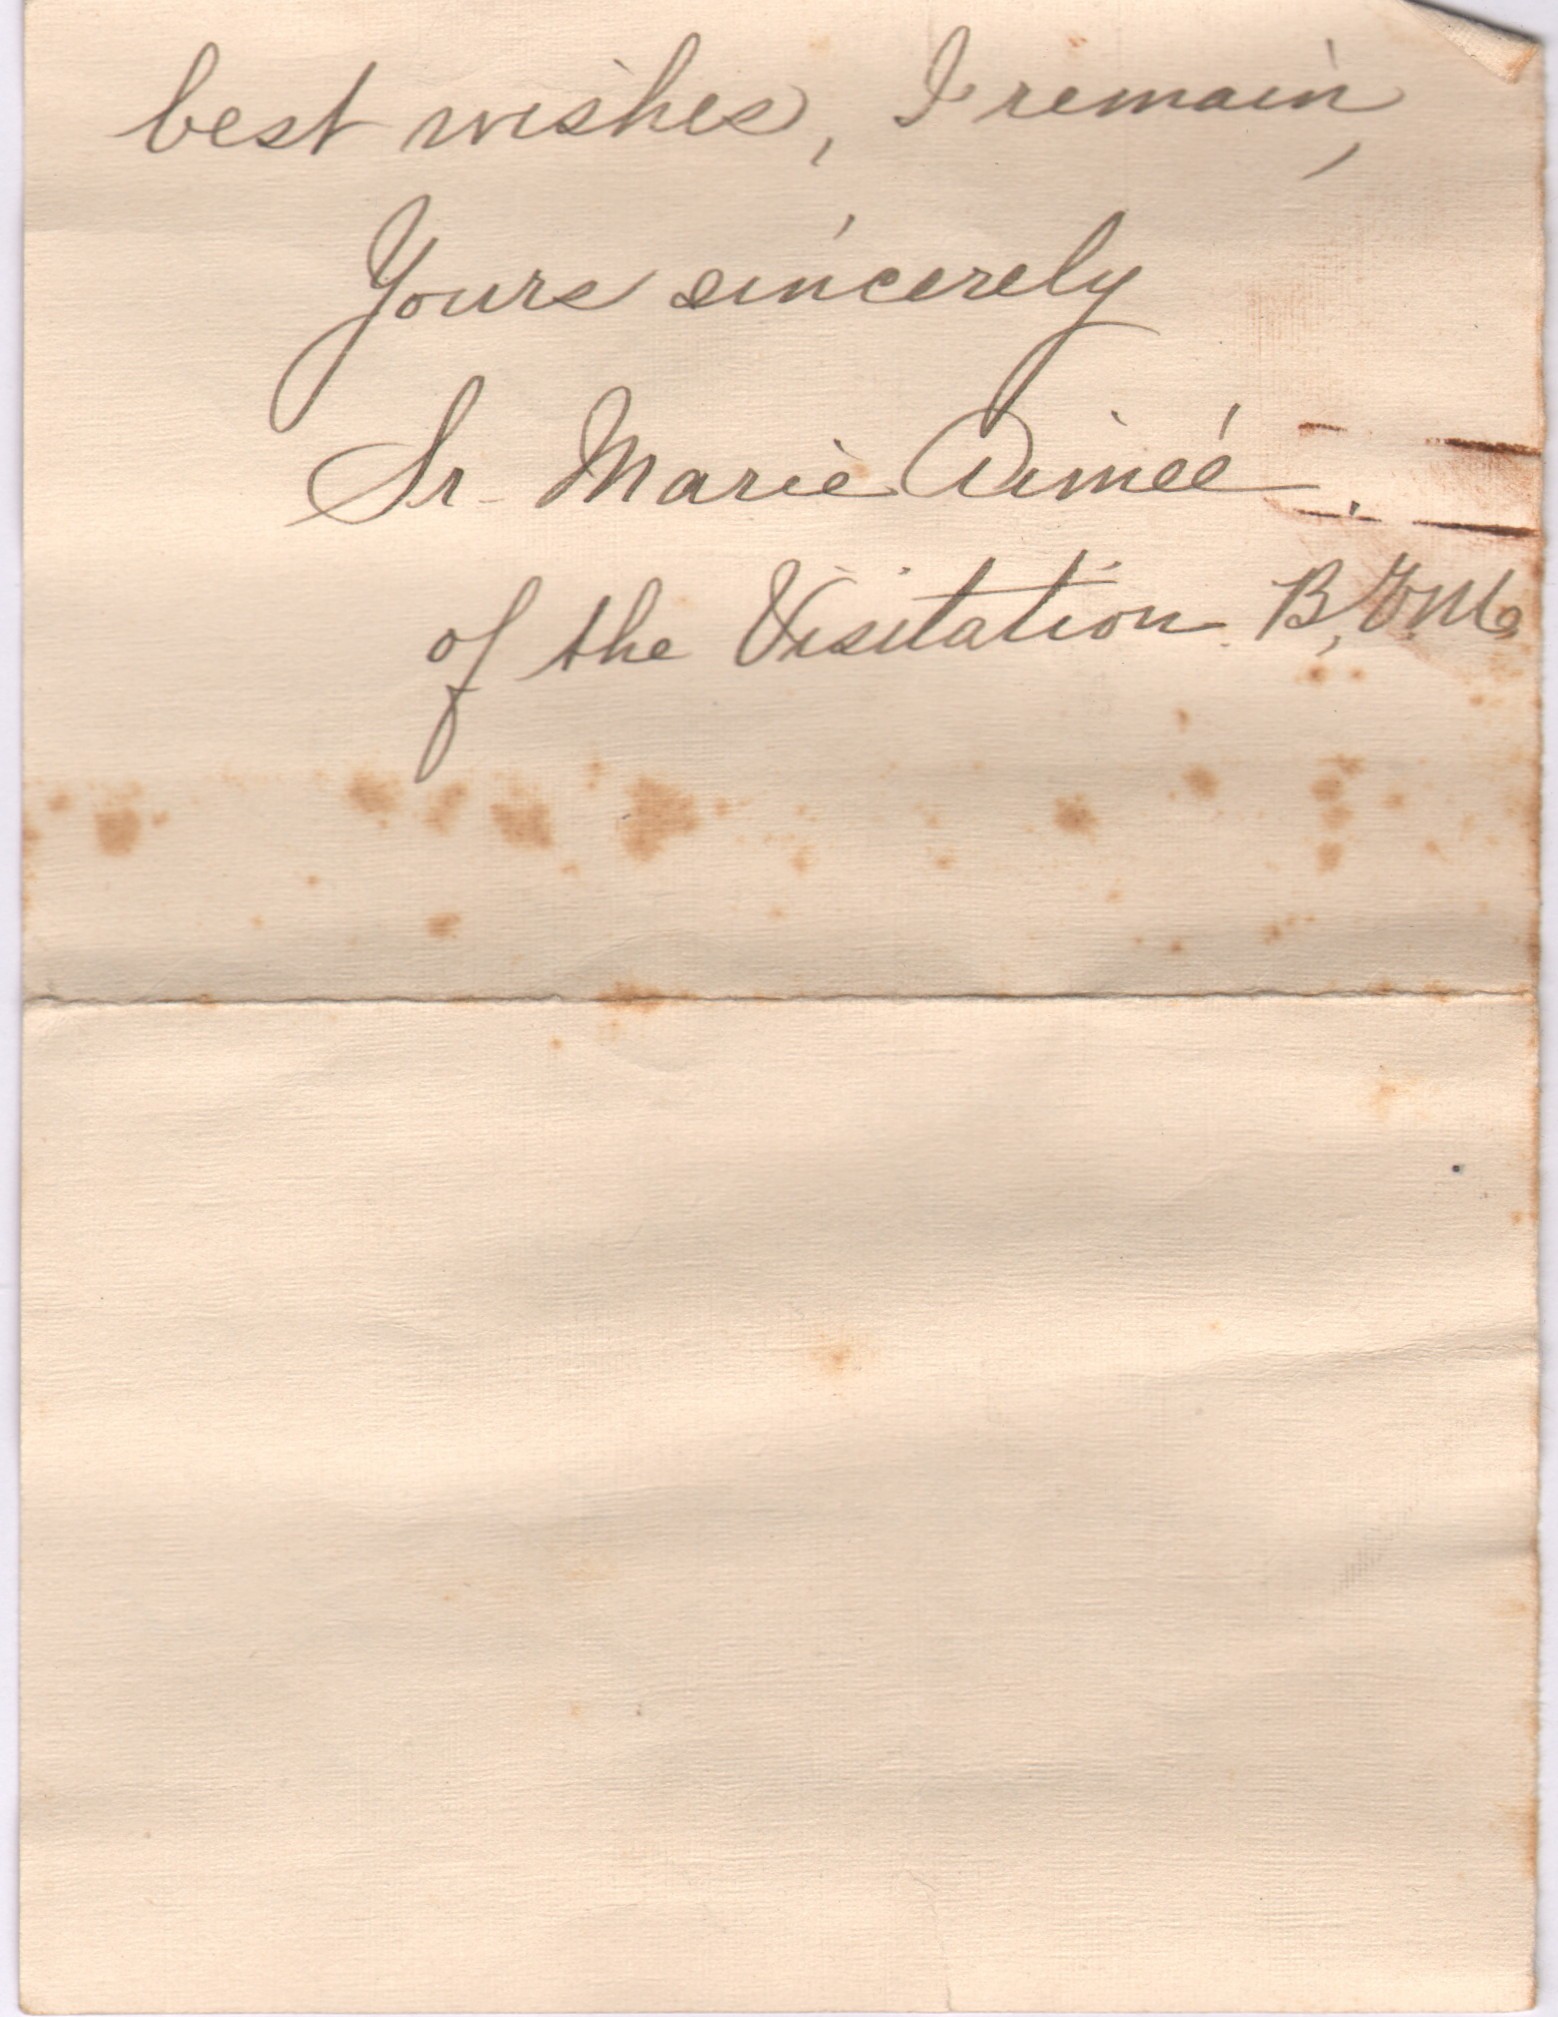 best wishes, I remain,
Yours sincerely
Sr. Marie Aimée.
of the Visitation B.V.M.